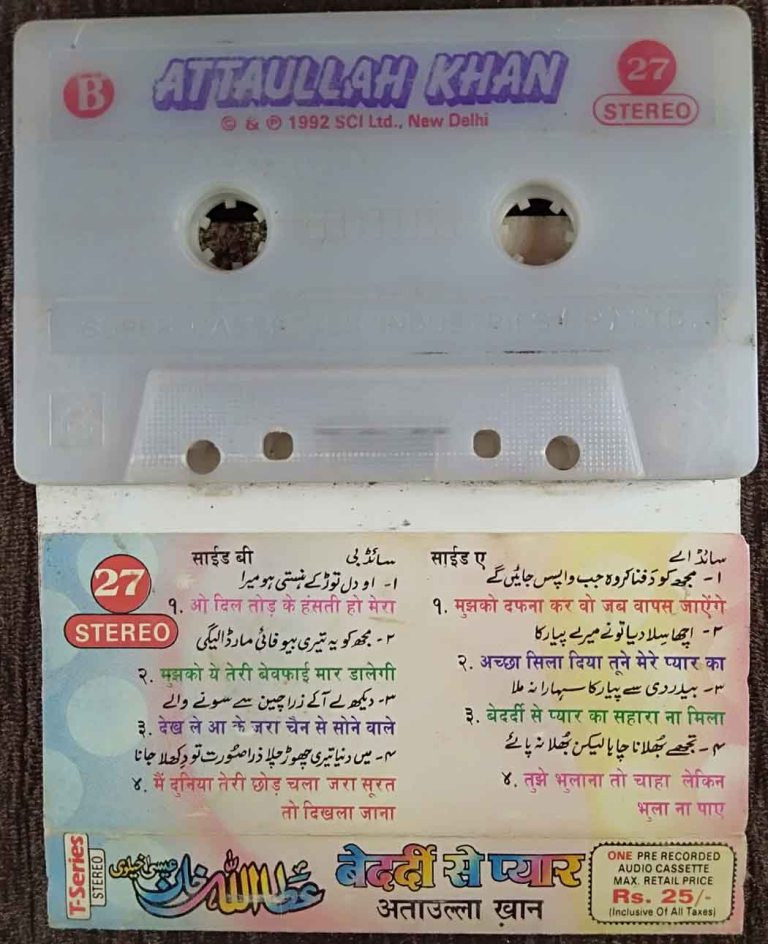 B
ATTAULLAH KHAN
27
STEREO
© & ℗ 1992 SCI Ltd., New Delhi
27
STEREO
साईड बी سائڈ بی
۱- او دل توڑ کے ہنستی ہو میرا
१. ओ दिल तोड़ के हंसती हो मेरा
۲- مجھ کو یہ تیری بیوفائی مار ڈالیگی
२. मुझको ये तेरी बेवफाई मार डालेगी
۳- دیکھ لے آ کے ذرا چین سے سونے والے
३. देख ले आ के जरा चैन से सोने वाले
۴- میں دنیا تیری چھوڑ چلا ذرا صورت تو دکھلا جانا
४. मैं दुनिया तेरी छोड़ चला जरा सूरत
तो दिखला जाना
साईड ए سائڈ اے
۱- مجھ کو دفنا کر وہ جب واپس جائیں گے
१. मुझको दफना कर वो जब वापस जाऐंगे
۲- اچھا سلا دیا تو نے میرے پیار کا
२. अच्छा सिला दिया तूने मेरे प्यार का
۳- بیدردی سے پیار کا سہارا نہ ملا
३. बेदर्दी से प्यार का सहारा ना मिला
۴- تجھے بھلانا چاہا لیکن بھلا نہ پائے
४. तुझे भुलाना तो चाहा लेकिन
भुला ना पाए
T-Series
STEREO
عطا اللہ خان عیسیٰ خیلوی
बेदर्दी से प्यार
अताउल्ला ख़ान
ONE PRE RECORDED
AUDIO CASSETTE
MAX. RETAIL PRICE
Rs. 25/-
(Inclusive Of All Taxes)